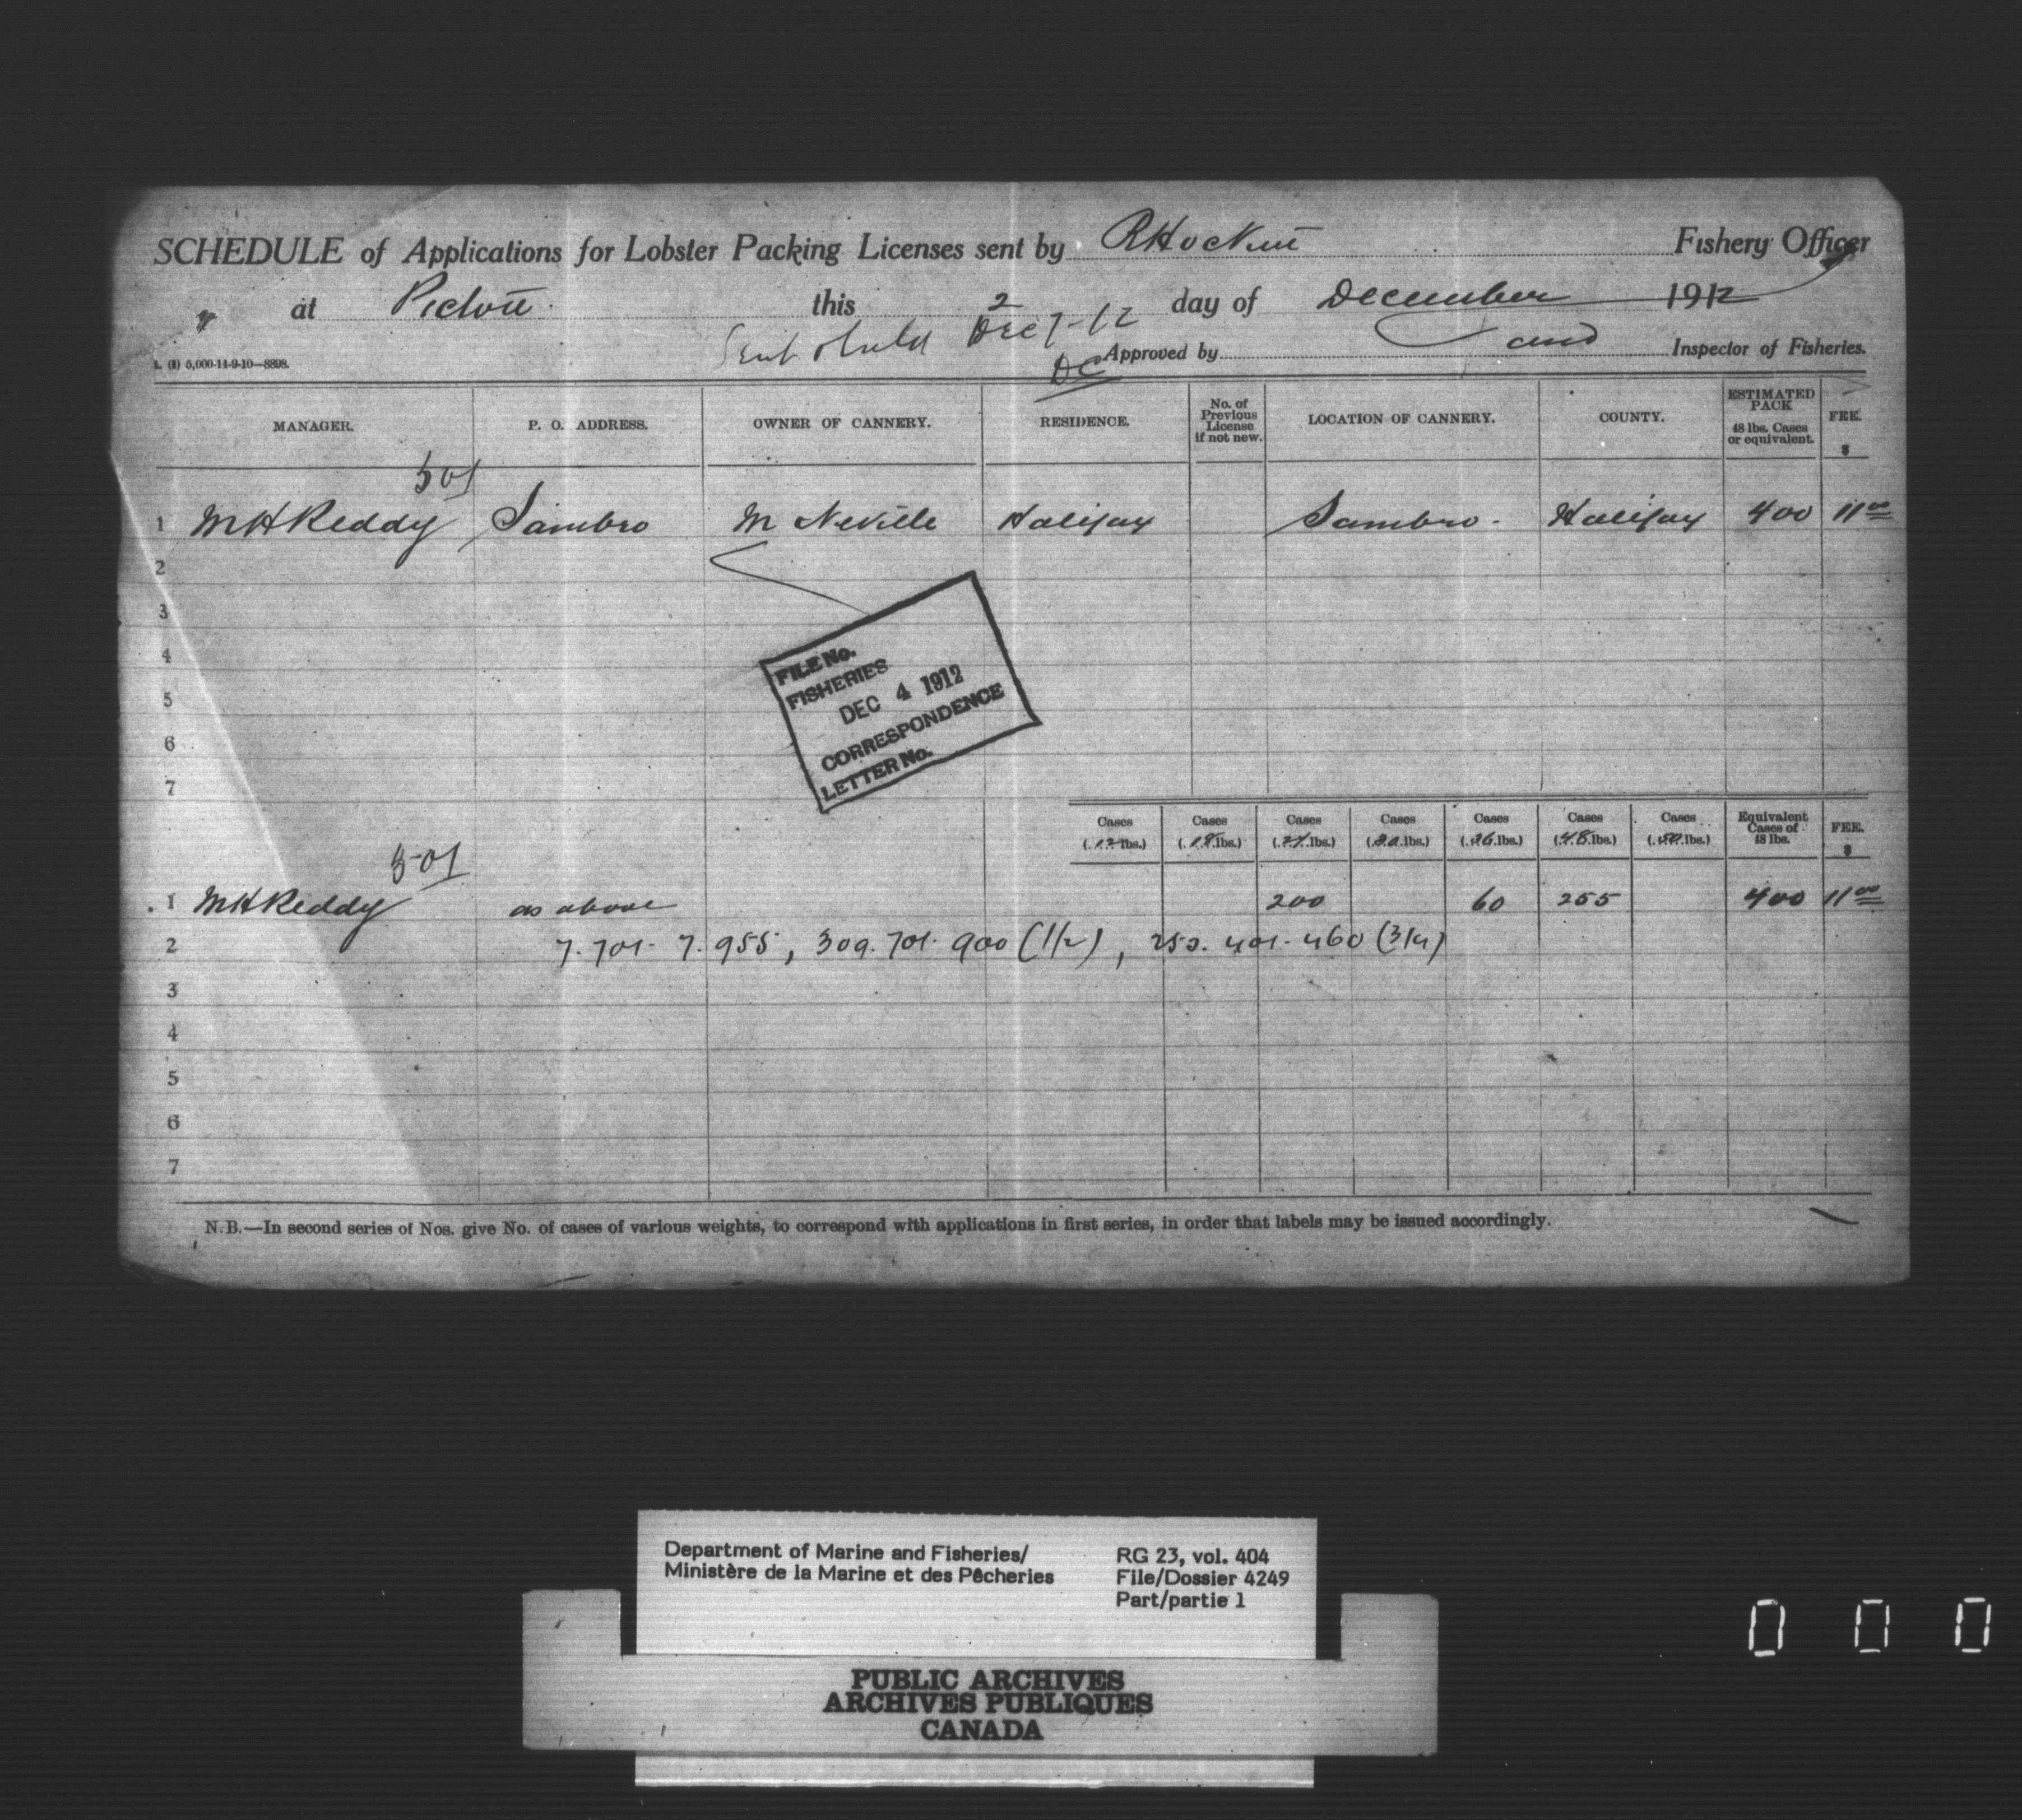 SCHEDULE of Applications for Lobster Packing Licenses sent by R Hockin Fishery Officer
at Pictou this 2 day of December 1912
Sent Dec 7-12
DC
Approved by and Inspector of Fisheries.
L. (1) 5,000-14-9-10—8898.
MANAGER. P. O. ADDRESS. OWNER OF CANNERY. RESIDENCE. No. of Previous License if not new. LOCATION OF CANNERY. COUNTY. ESTIMATED PACK 48 lbs. Cases or equivalent. FEE. $
501
1 M H Reddy Sambro M Neville Halifax Sambro. Halifax 400 11 00
2
3
4
5
6
7
FILE No.
FISHERIES
DEC 4 1912
CORRESPONDENCE
LETTER No.
Cases (.12 lbs.) Cases (.18 lbs.) Cases (.24 lbs.) Cases (.30 lbs.) Cases (.36 lbs.) Cases (.48 lbs.) Cases (lbs.) Equivalent Cases of 48 lbs. FEE. $
501
1 M H Reddy as above 200 60 255 400 11 00
2 7.701- 7.955, 309.701-900 (1/2), 252.401-460 (3/4)
3
4
5
6
7
N.B.—In second series of Nos. give No. of cases of various weights, to correspond with applications in first series, in order that labels may be issued accordingly.
Department of Marine and Fisheries/
Ministère de la Marine et des Pêcheries
RG 23, vol. 404
File/Dossier 4249
Part/partie 1
PUBLIC ARCHIVES
ARCHIVES PUBLIQUES
CANADA
0 0 0